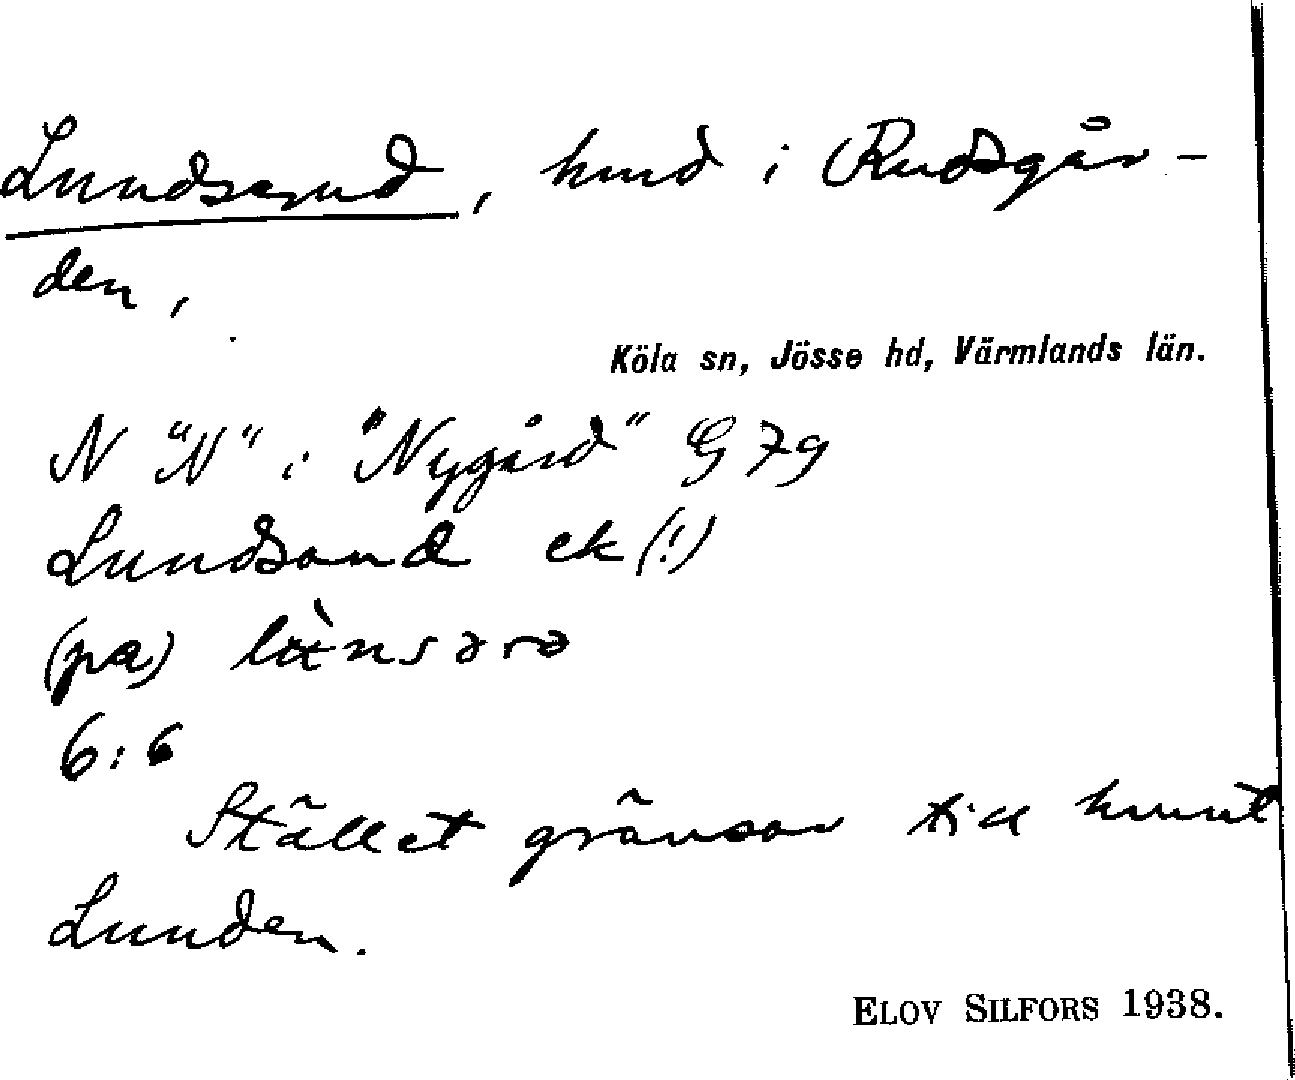 Lundserud, hmd i Rudsgår-
den,
Köla sn, Jösse hd, Värmlands län.
N "N" i "Nygård" G 79
Lundsand ek (!)
(pa)
6:6
Stället gränsar till hmnt
Lunden.
ELOV SILFORS 1938.